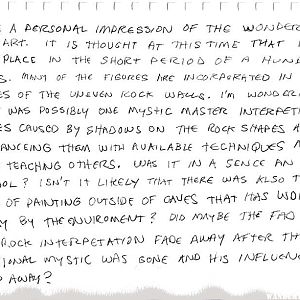 E A PERSONAL IMPRESSION OF THE WONDER
ART. IT IS THOUGHT AT THIS TIME THAT I
PLACE IN THE SHORT PERIOD OF A HUN
S. MANY OF THE FIGURES ARE INCORPORATED IN
ES OF THE UNEVEN ROCK WALLS. I'M WONDERI
WAS POSSIBLY ONE MYSTIC MASTER INTERPETI
ES CAUSED BY SHADOWS ON THE ROCK SHAPES A
ANCEING THEM WITH AVAILABLE TECHNIQUES A
TEACHING OTHERS. WAS IT IN A SENCE AN
OOL? ISN'T IT LIKELY THAT THERE WAS ALSO T
OF PAINTING OUTSIDE OF CAVES THAT HAS WOR
Y BY THE ENVIROMENT? DID MAYBE THE FAD
ROCK INTERPETATION FADE AWAY AFTER TH
IONAL MYSTIC WAS GONE AND HIS INFLUEN
D AWAY?